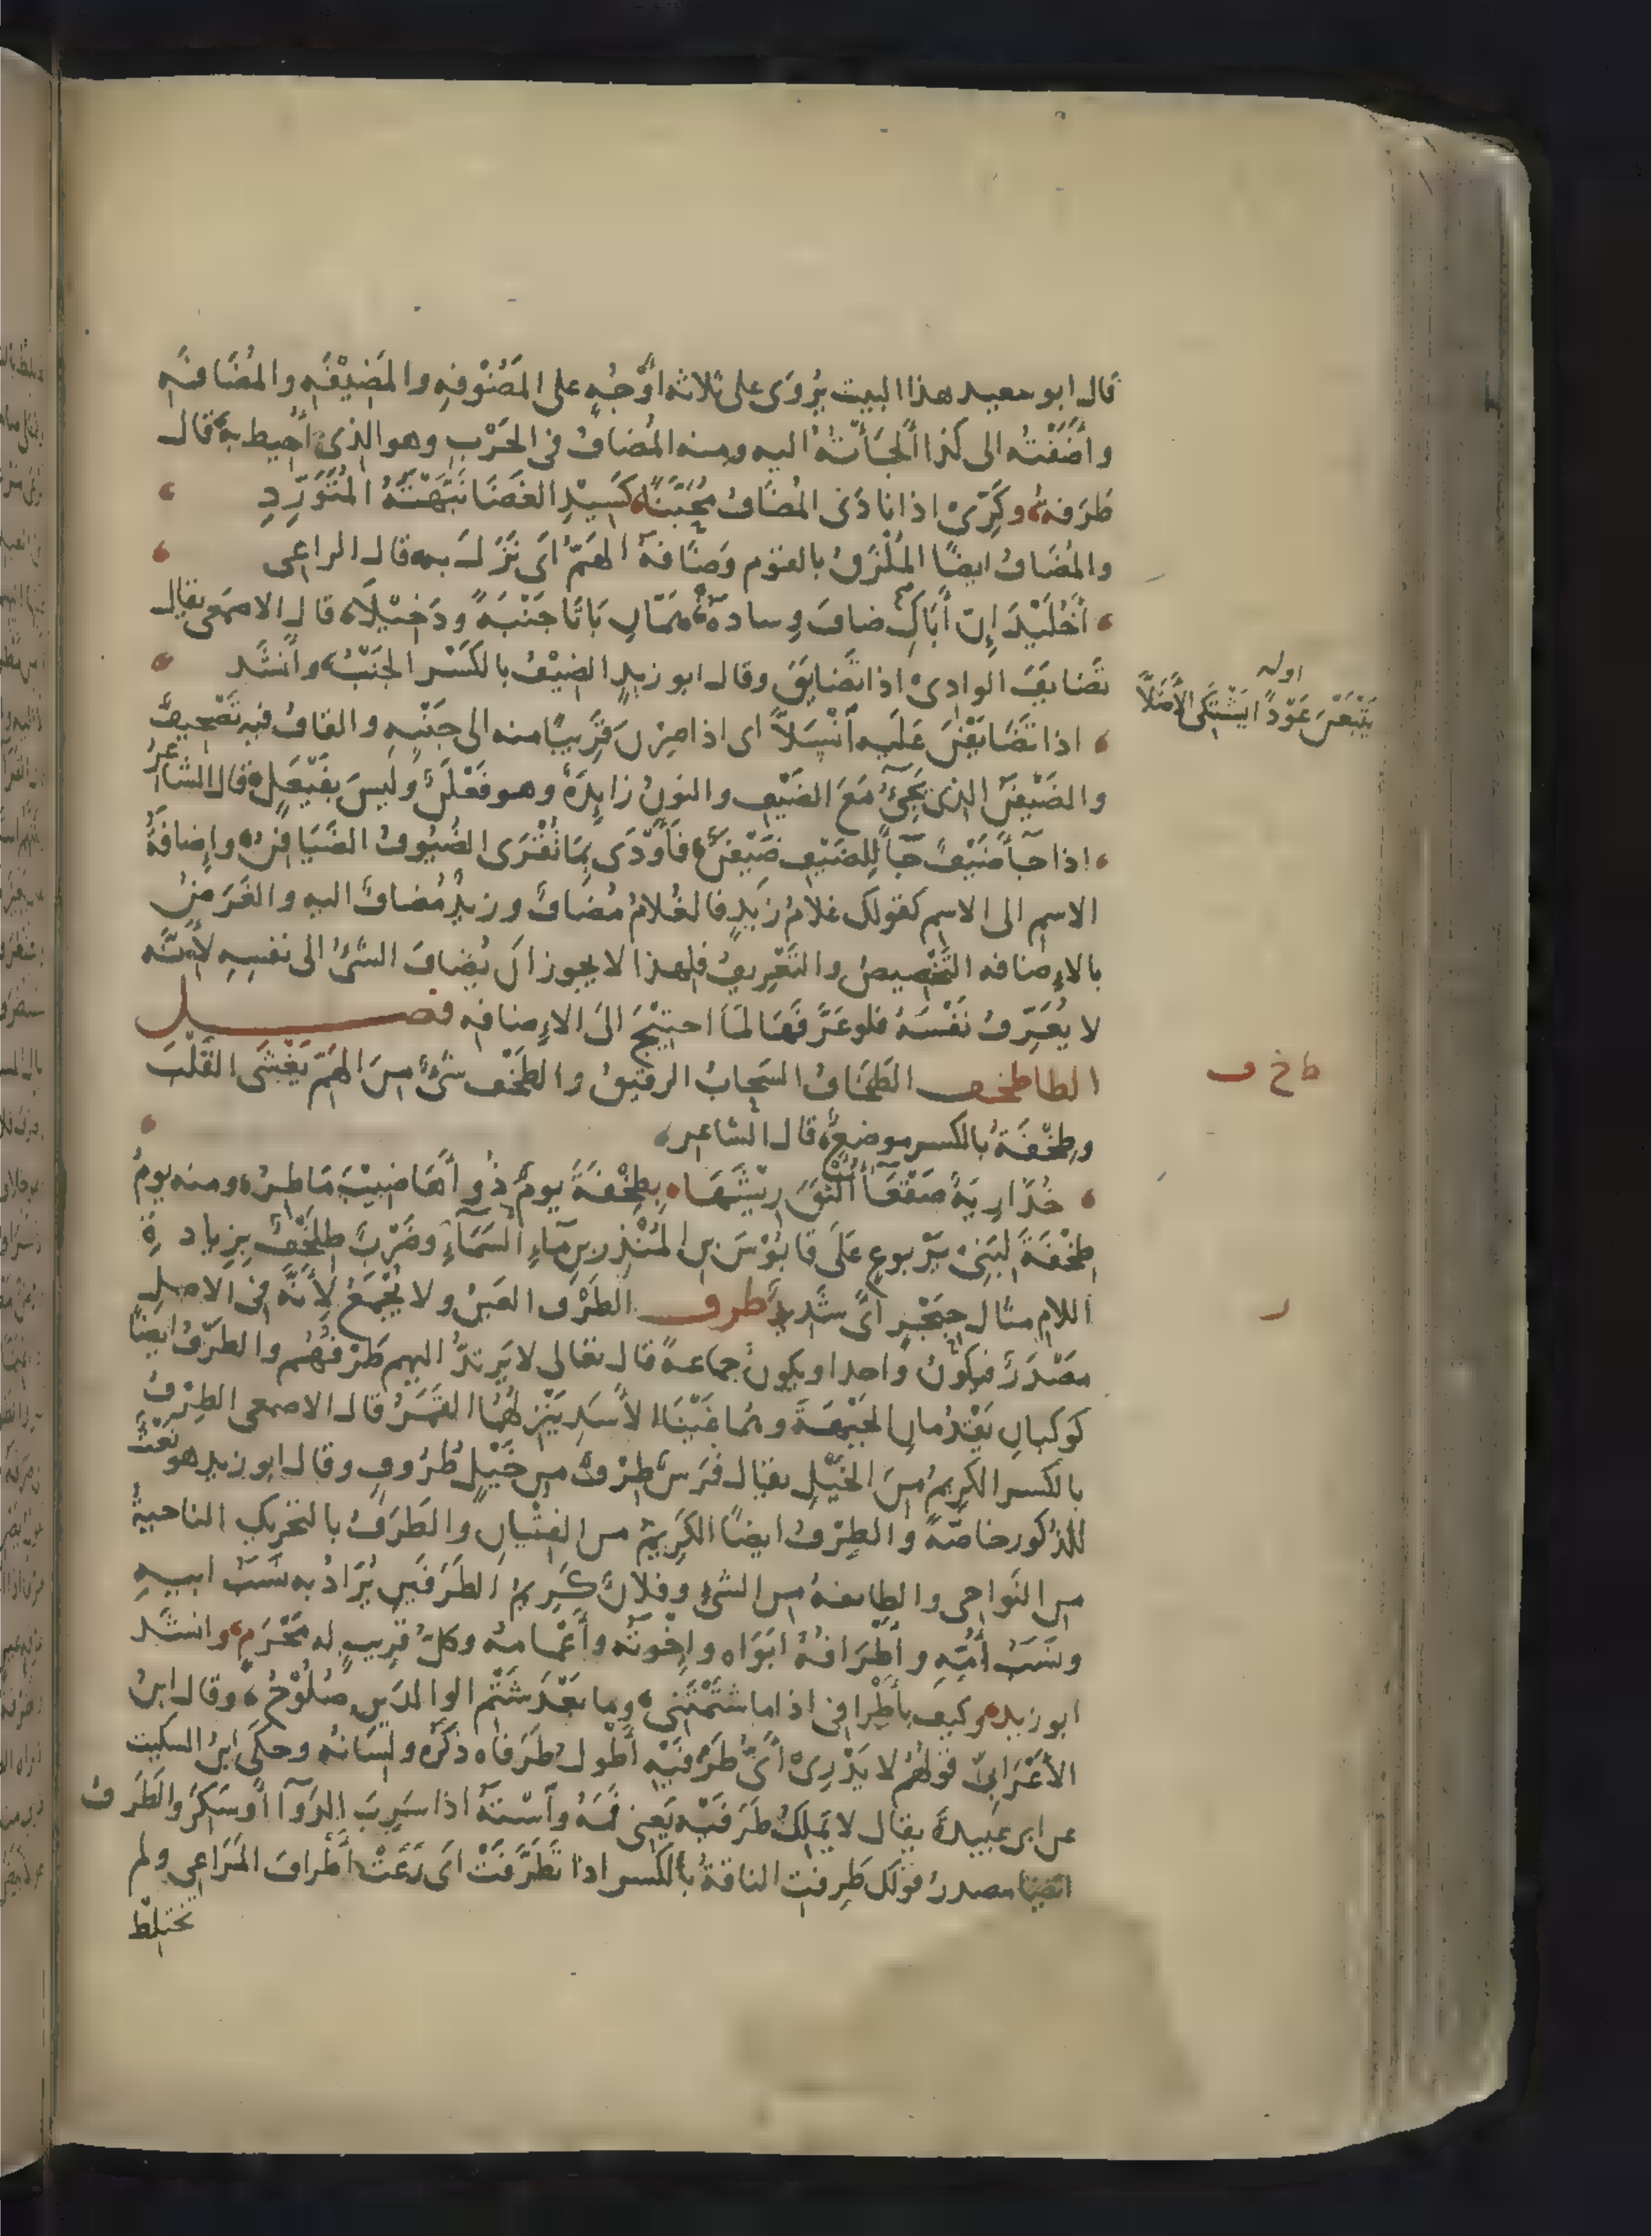 قال ابو سعيد هذا البيت يُروَى على ثلاثه اَوْجُهٍ على المَضُوْفهِ والمَضِيْفَهِ والمُضَافهِ
واَضَفْتُه الى كَذا اَلْجَأْتُهُ اليه ومنه المُضافُ فى الحَرْبِ وهو الذى اُحِيط به قال
طَرَفهُ وكَرِّىْ اذا نادَى المُضَافُ مُحَنَّبًا كَسِيْدِ الغَضَا نَبَّهْتَهُ المُتَوَرِّدِ
والمُضَافُ ايضًا المُلْزَقُ بالقوم وضَافهُ الهَمّ اَى نَزَلَ به قال الراعى
أَخُلَيْدَ إِنّ أَبَاكِ ضافَ وِسادهُ هَمّانِ بَاتَا جَنْبَةً ودَخِيْلاَ قال الاصمَعى يقال
تَضَايَفَ الوادِىْ اذا تَضايَقَ وقال ابو زيدٍ الضِيْفُ بالكَسْر الجَنْبُ واَنشَد
اوله
يَتْبَعْنَ عَوْدًا يَشْتَكى الأَظَلاَّ
اذا تَضَايَفْنَ عَلَيه اَنْسَلاَّ اى اذا صِرْنَ قَرِيبًا منه الى جَنْبِهِ والقافُ فيه تَصْحِيفٌ
والضَيْفَنُ الذى يَجِئُ مَعَ الضَيْفِ والنونُ زايِدةٌ وهو فَعْلَنٌ ولَيسَ بفَيْعَلٍ قال الشاعِرُ
اذا جآ ضَيْفٌ جآ لِلضَيفِ ضَيْفَنٌ فاَوْدَى بِمَا تُقْرَى الضُيُوفُ الضَيَافِنُ وإِضافَةُ
الاسمِ الى الاسمِ كقولك غلامُ زَيدٍ فالغُلامُ مُضافٌ وزيدٌ مُضافٌ اليه والغَرَضُ
بالاِضافه التَخْصِيصُ والتَعْرِيفُ فلهذا لا يجوز اَن يُضافَ الشَئُ الى نفسِهِ لأَنّه
لا يُعَرِّفُ نَفْسَهُ فلو عَرَّفَهَا لمَا احتِيْجَ الىَ الاِضافه فصل
ط خ ف
الطا طخف الطَخَافُ السَحابُ الرقيقُ والطَخْف شَئٌ مِنَ الهَمّ يَغْشَى القَلْبَ
وطِخْفَةُ بالكسر موضعٌ قال الشاعر
خُدَارِيةٌ صَقْعَآ اَلثَقَ رِيْشَهَا بِطِخْفَةَ يومٌ ذُو اَهَاضِيْبَ مَاطِرُ ومنه يومُ
طِخْفَةَ لبَنِىْ يَرْبوعٍ عَلَى قابُوْسَ بنِ المُنْذِر بنِ مآءِ السَمآءِ وضَرْبٌ طِلَخْفٌ بزيادةِ
ر
اللام مثال حِبَجْرٍ اَى شديدٌ طرف الطَرْفُ العَينُ ولا يُجْمَعُ لأَنّه فى الاصلِ
مَصْدَرٌ فيكونُ واحدا ويكون جماعةً قال تعالى لا يَرتدُّ اليهم طَرْفُهُم والطَرْفُ ايضًا
كوكبانِ يَقْدُمانِ الجَبْهَةَ وهما عَيْنَا الأَسَد يَنْزِلُهُمَا القَمَرُ قال الاصمعى الطِرْفُ
بالكسر الكرِيمُ مِنَ الخَيْلِ يقال فَرَسٌ طِرْفٌ مِن خَيْلٍ طُرُوفٍ وقال ابو زيد هو نَعْتٌ
للذكور خاصّةً والطِرْفُ ايضًا الكَرِيمُ من الفِتْيانِ والطَرَفُ بالتحريكِ الناحيةُ
من النَواحى والطايفهُ من الشئِ وفلانٌ كَرِيمُ الطَرَفَينِ يُرَادُ به نَسَبُ ابيهِ
ونَسَبُ اُمِّهِ واَطْرَافُهُ ابَوَاه واِخْوتُه واَعْمامهُ وكلّ قَرِيبٍ له مَحْرَمٍ وانشَد
ابو زيد وكيف بأَطْرافى اذا ما شَتَمْتَنِى وما بَعْدَ شَتْم الوالدَينِ صُلُوْحُ وقال ابنُ
الأَعْرَابىّ قولُهُم لا يَدْرِىْ اَىُّ طَرَفَيْهِ اَطْولُ طَرَفاه ذكَرُه ولِسَانهُ وحكَى ابنُ السكيت
عن ابى عبيدةَ يقال لا يَملِكُ طَرَفَيْه يَعنِى فَمَهُ واسْتَهُ اذا شَرِبَ الدَوآ اَو سَكِرَ والطَرَفُ
ايضا مصدرُ قولك طَرِفتِ الناقةُ بالكسر اذا تَطَرَّفَتْ اى رَعَتْ اَطرافَ المَرَاعِى ولم
تختلِط